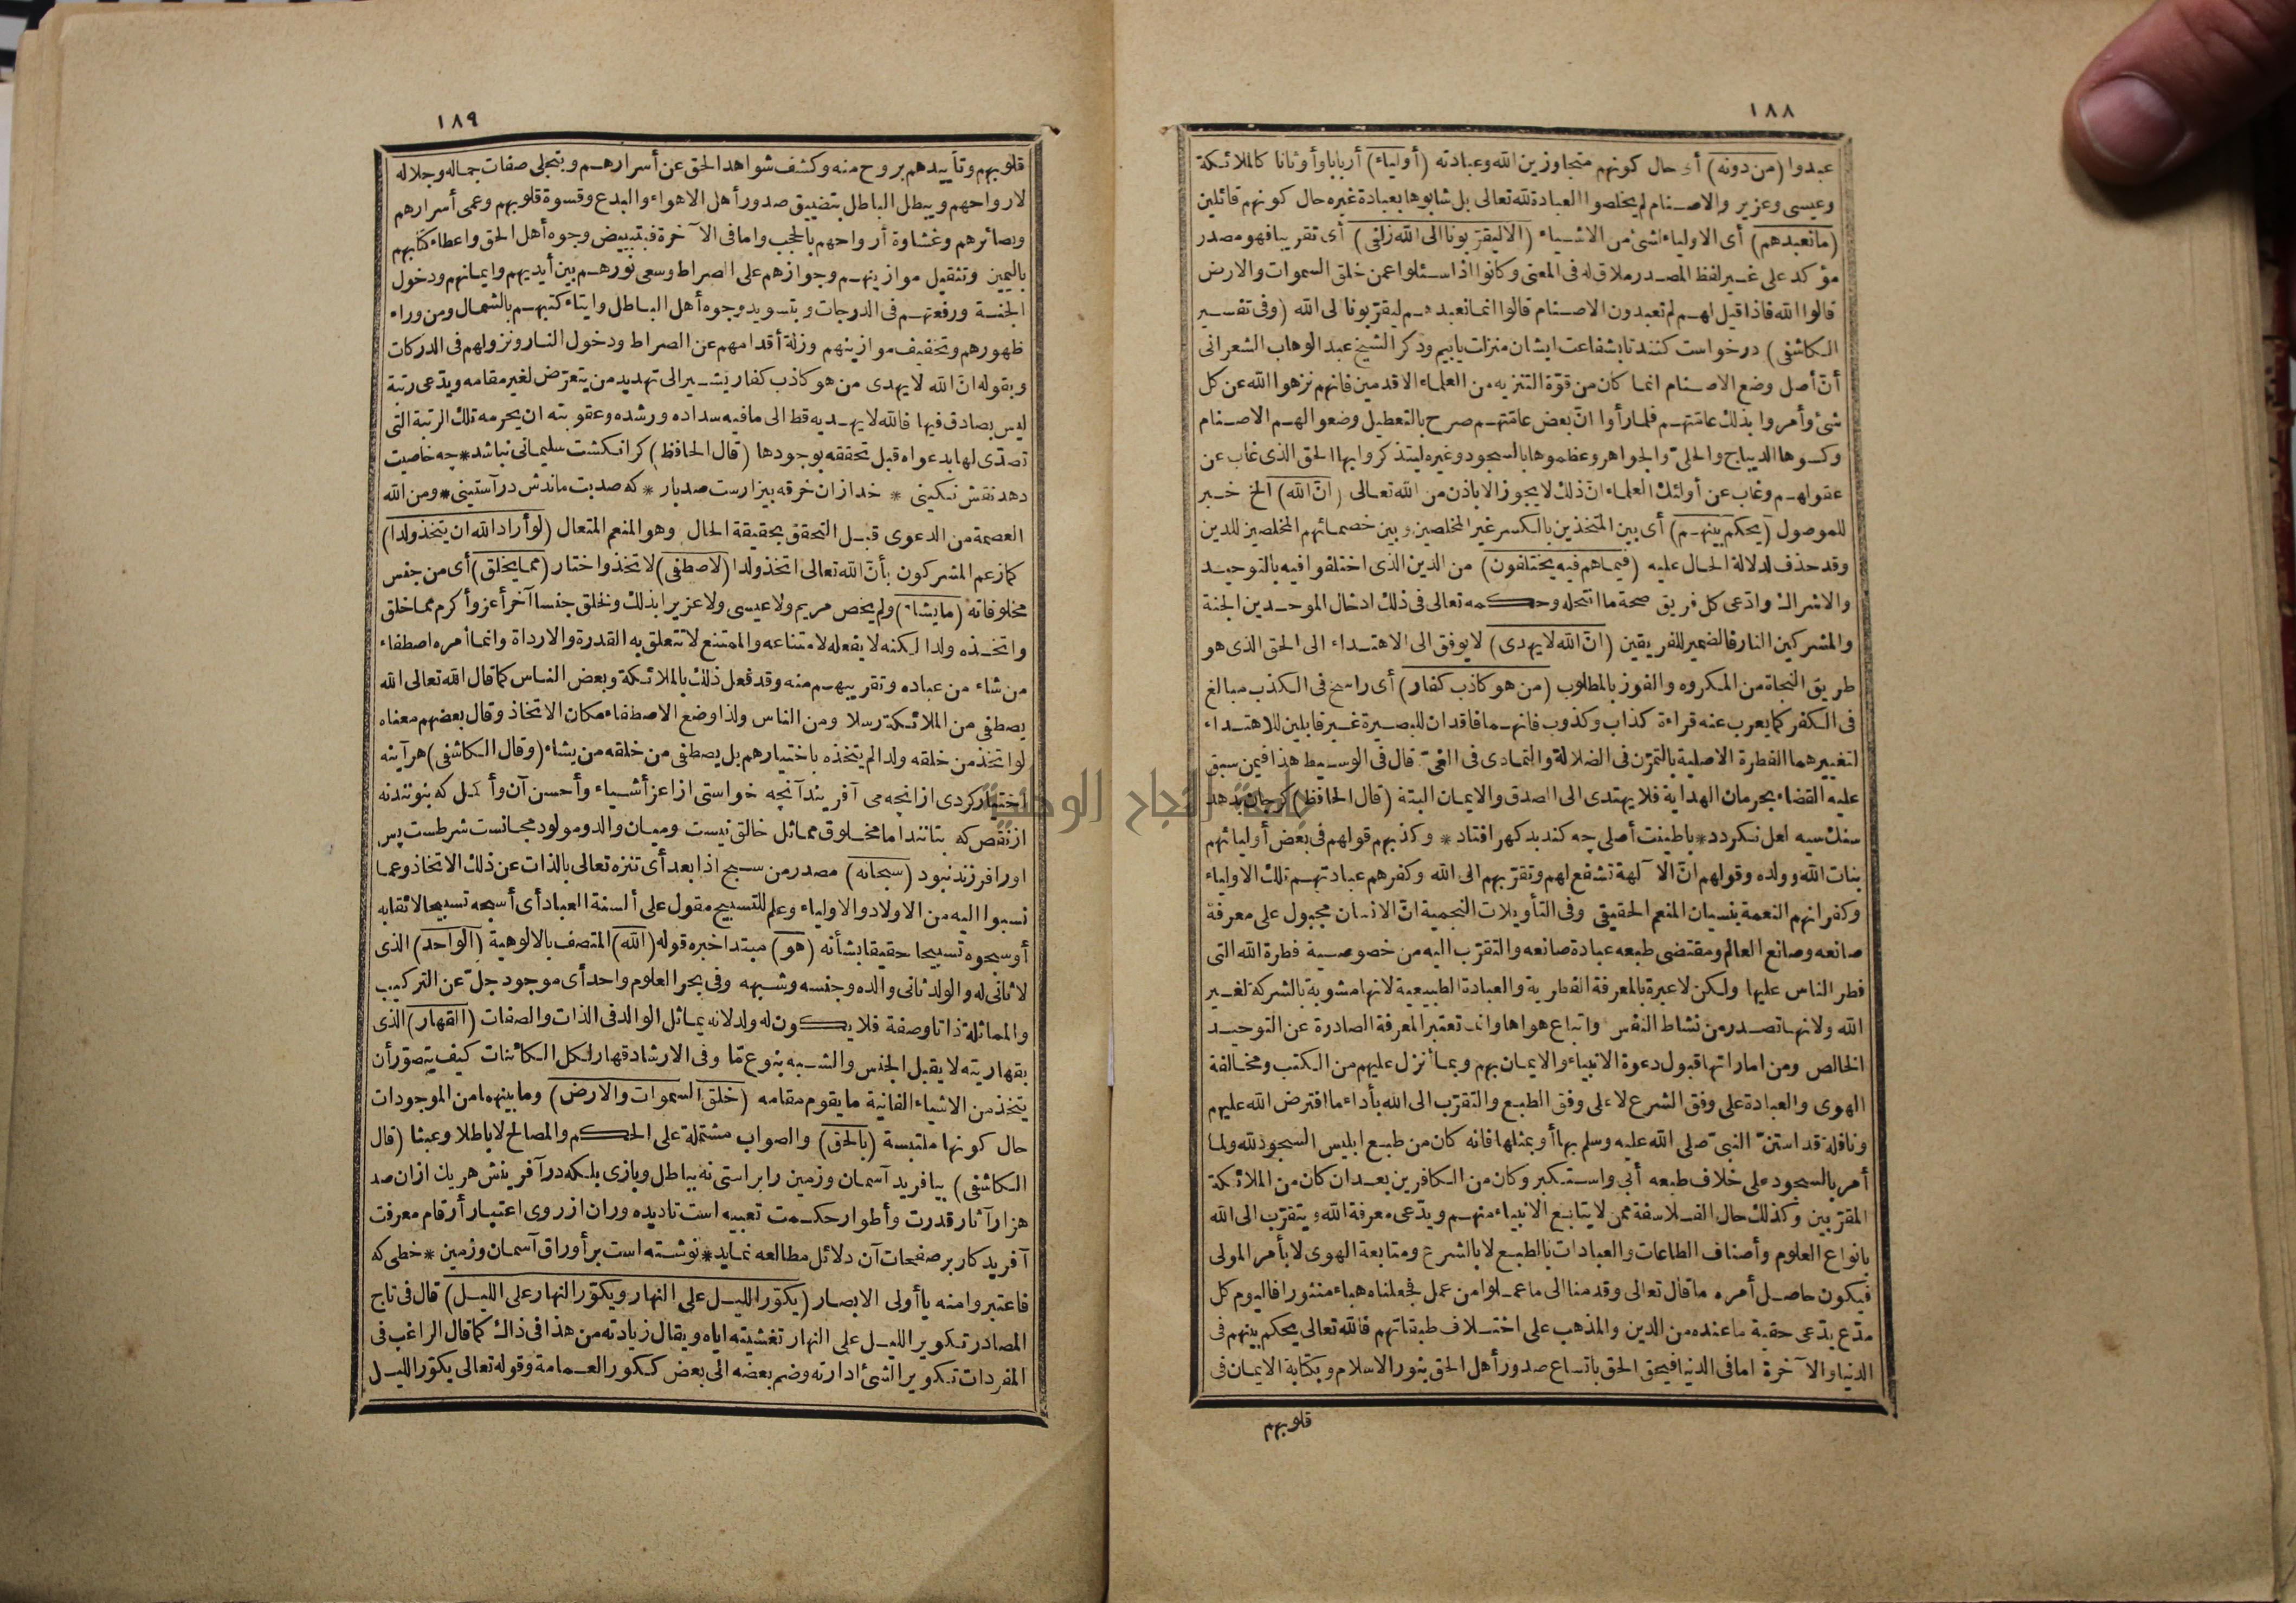 ١٨٨
عبدوا (من دونه) أى حال كونهم متجاوزين الله وعبادته (أولياء) أربابا وأوثانا كالملائكة
وعيسى وعزير والاصنام لم يخلصوا العبادة لله تعالى بل شابوها بعبادة غيره حال كونهم قائلين
(مانعبدهم) أى الاولياء لشئ من الاشياء (الا ليقربونا الى الله زلفى) أى تقريبا فهو مصدر
مؤكد على غير لفظ المصدر ملاق له فى المعنى وكانوا اذا سئلوا عمن خلق السموات والارض
قالوا الله فاذا قيل لهم لم تعبدون الاصنام قالوا انما نعبدهم ليقربونا الى الله (وفى تفسير
الكاشفى) درخواست كنند تا بشفاعت ايشان منزات يابيم وذكر الشيخ عبد الوهاب الشعرانى
أنّ أصل وضع الاصنام انما كان من قوّة التنزيه من العلماء الاقدمين فانهم نزهوا الله عن كل
شئ وأمروا بذلك عامّتهم فلما رأوا انّ بعض عامّتهم صرح بالتعطيل وضعوا لهم الاصنام
وكسوها الديباج والحلىّ والجواهر وعظموها بالسجود وغيره ليتذكروا بها الحق الذى غاب عن
عقولهم وغاب عن أولئك العلماء انّ ذلك لا يجوز الا باذن من الله تعالى (انّ الله) الخ خبر
للموصول (يحكم بينهم) أى بين المتخذين بالكسر غير المخلصين وبين خصمائهم المخلصين للدين
وقد حذف لدلالة الحال عليه (فيما هم فيه يختلفون) من الدين الذى اختلفوا فيه بالتوحيد
والاشراك وادّعى كل فريق صحة ما انتحله وحكمه تعالى فى ذلك ادخال الموحدين الجنة
والمشركين النار فالضمير للفريقين (انّ الله لا يهدى) لا يوفق الى الاهتداء الى الحق الذى هو
طريق النجاة من المكروه والفوز بالمطلوب (من هو كاذب كفار) أى راسخ فى الكذب مبالغ
فى الكفر كما يعرب عنه قراءة كذاب وكذوب فانهما فاقدان للبصيرة غير قابلين للاهتداء
لتغييرهما الفطرة الاصلية بالتمرّن فى الضلالة والتمادى فى الغىّ قال فى الوسيط هذا فيمن سبق
عليه القضاء بحرمان الهداية فلا يهتدى الى الصدق والايمان البتة (قال الحافظ) كرجان بدهد
سنك سيه لعل نكردد * باطينت أصلى چه كند بدكهر افتاد * وكذبهم قولهم فى بعض أوليائهم
بنات الله وولده وقولهم انّ الآلهة تشفع لهم وتقرّبهم الى الله وكفرهم عبادتهم تلك الاولياء
وكفرانهم النعمة بنسيان المنعم الحقيقى وفى التأويلات النجمية انّ الانسان مجبول على معرفة
صانعه وصانع العالم ومقتضى طبعه عبادة صانعه والتقرّب اليه من خصوصية فطرة الله التى
فطر الناس عليها ولكن لا عبرة بالمعرفة الفطرية والعبادة الطبيعية لانها مشوبة بالشركة لغير
الله ولانها تصدر من نشاط النفس واتباع هواها وانما تعتبر المعرفة الصادرة عن التوحيد
الخالص ومن اماراتها قبول دعوة الانبياء والايمان بهم وبما أنزل عليهم من الكتب ومخالفة
الهوى والعبادة على وفق الشرع لا على وفق الطبع والتقرّب الى الله بأداء ما افترض الله عليهم
ونافلة قد استنّ النبىّ صلى الله عليه وسلم بها أو بمثلها فانه كان من طبع ابليس السجود لله ولما
أمر بالسجود على خلاف طبعه أبى واستكبر وكان من الكافرين بعد ان كان من الملائكة
المقرّبين وكذلك حال الفلاسفة ممن لا يتابع الانبياء منهم ويدّعى معرفة الله ويتقرّب الى الله
بانواع العلوم وأصناف الطاعات والعبادات بالطبع لا بالشرع ومتابعة الهوى لا بأمر المولى
فيكون حاصل أمره ما قال تعالى وقدمنا الى ما عملوا من عمل فجعلناه هباء منثورا فاليوم كل
مدّع يدّعى حقية ما عنده من الدين والمذهب على اختلاف طبقاتهم فالله تعالى يحكم بينهم فى
الدنيا والآخرة اما فى الدنيا فيحق الحق باتساع صدور أهل الحق بنور الاسلام وبكتابة الايمان فى
قلوبهم
١٨٩
قلوبهم وتأييدهم بروح منه وكشف شواهد الحق عن أسرارهم وبتجلى صفات جماله وجلاله
لارواحهم ويبطل الباطل بتضييق صدور أهل الاهواء والبدع وقسوة قلوبهم وعمى أسرارهم
وبصائرهم وغشاوة أرواحهم بالحجب واما فى الآخرة فبتبييض وجوه أهل الحق واعطاء كتابهم
باليمين وتثقيل موازينهم وجوازهم على الصراط وسعى نورهم بين أيديهم وايمانهم ودخول
الجنة ورفعتهم فى الدرجات وبتسويد وجوه أهل الباطل وايتاء كتبهم بالشمال ومن وراء
ظهورهم وتخفيف موازينهم وزلة أقدامهم عن الصراط ودخول النار ونزولهم فى الدركات
وبقوله انّ الله لا يهدى من هو كاذب كفار يشير الى تهديد من يتعرّض لغير مقامه ويدّعى رتبة
ليس بصادق فيها فالله لا يهديه قط الى ما فيه سداده ورشده وعقوبته ان يحرمه تلك الرتبة التى
تصدّى لها بدعواه قبل تحققه بوجودها (قال الحافظ) كر انكشت سليمانى نباشد * چه خاصيت
دهد نقش نكينى * خدا زان خرقه بيزارست صدبار * كه صد بت ماندش در آستينى * ومن الله
العصمة من الدعوى قبل التحقق بحقيقة الحال وهو المنعم المتعال (لو أراد الله ان يتخذ ولدا)
كما زعم المشركون بأنّ الله تعالى اتخذ ولدا (لاصطفى) لا تخذ واختار (مما يخلق) أى من جنس
مخلوقاته (ما يشاء) ولم يخص مريم ولا عيسى ولا عزيرا بذلك ولخلق جنسا آخر أعز وأكرم مما خلق
واتخذه ولدا لكنه لا يفعله لامتناعه والممتنع لا تتعلق به القدرة والارداة وانما أمره اصطفاء
من شاء من عباده وتقريبهم منه وقد فعل ذلك بالملائكة وبعض الناس كما قال الله تعالى الله
يصطفى من الملائكة رسلا ومن الناس ولذا وضع الاصطفاء مكان الاتخاذ وقال بعضهم معناه
لو اتخذ من خلقه ولدا لم يتخذه باختيارهم بل يصطفى من خلقه من يشاء (وقال الكاشفى) هر آينه
اختيار كردى ازانچه مى آفريند آنچه خواستى از اعز أشياء وأحسن آن وأكمل كه بنوتندنه
از نقص كه بتانند اما مخلوق مماثل خالق نيست وميان والد ومولود مجانست شرطست پس
اورا فرزند نبود (سبحانه) مصدر من سبح اذا بعد أى تنزه تعالى بالذات عن ذلك الاتخاذ وعما
نسبوا اليه من الاولاد والاولياء وعلم للتسبيح مقول على ألسنة العباد أى أسبحه تسبيحا لائقا به
أو سبحوه تسبيحا حقيقا بشأنه (هو) مبتدا خبره قوله (الله) المتصف بالالوهية (الواحد) الذى
لا ثانى له والولد ثانى والده وجنسه وشبهه وفى بحر العلوم واحد أى موجود جلّ عن التركيب
والمماثلة ذاتا وصفة فلا يكون له ولد لانه يماثل الوالد فى الذات والصفات (القهار) الذى
بقهاريته لا يقبل الجنس والشبه بنوع مّا وفى الارشاد قهار لكل الكائنات كيف يتصوّر أن
يتخذ من الاشياء الفانية ما يقوم مقامه (خلق السموات والارض) وما بينهما من الموجودات
حال كونها ملتبسة (بالحق) والصواب مشتملة على الحكم والمصالح لا باطلا وعبثا (قال
الكاشفى) بيافريد آسمان وزمين را براستى نه بباطل وبازى بلكه در آفرينش هريك ازان صد
هزار آثار قدرت وأطوار حكمت تعبيه است تا ديده وران از روى اعتبار أرقام معرفت
آفريد كار بر صفحات آن دلائل مطالعه نمايد * نوشته است بر أوراق آسمان وزمين * خطى كه
فاعتبروا منه يا أولى الابصار (يكوّر الليل على النهار ويكوّر النهار على الليل) قال فى تاج
المصادر تكوير الليل على النهار تغشيته اياه ويقال زيادته من هذا فى ذاك كما قال الراغب فى
المفردات تكوير الشئ ادارته وضم بعضه الى بعض ككور العمامة وقوله تعالى يكوّر الليل